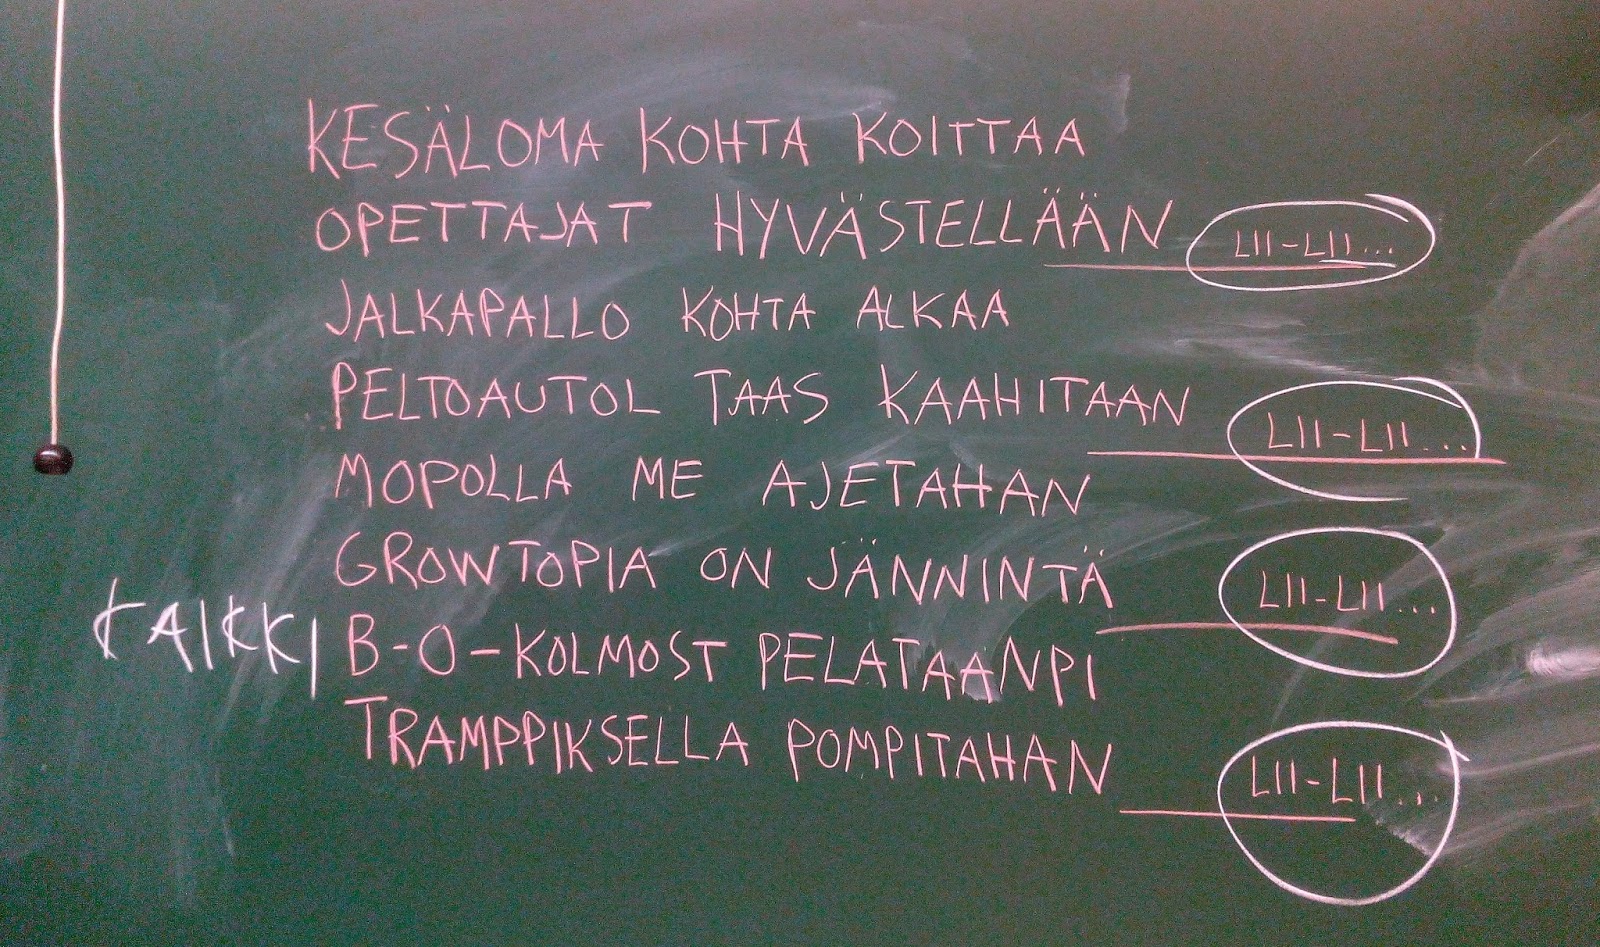 KESÄLOMA KOHTA KOITTAA
OPETTAJAT HYVÄSTELLÄÄN LII-LII...
JALKAPALLO KOHTA ALKAA
PELTOAUTOL TAAS KAAHITAAN LII-LII...
MOPOLLA ME AJETAHAN
GROWTOPIA ON JÄNNINTÄ LII-LII...
KAIKKI B-O-KOLMOST PELATAANPI
TRAMPPIKSELLA POMPITAHAN LII-LII...